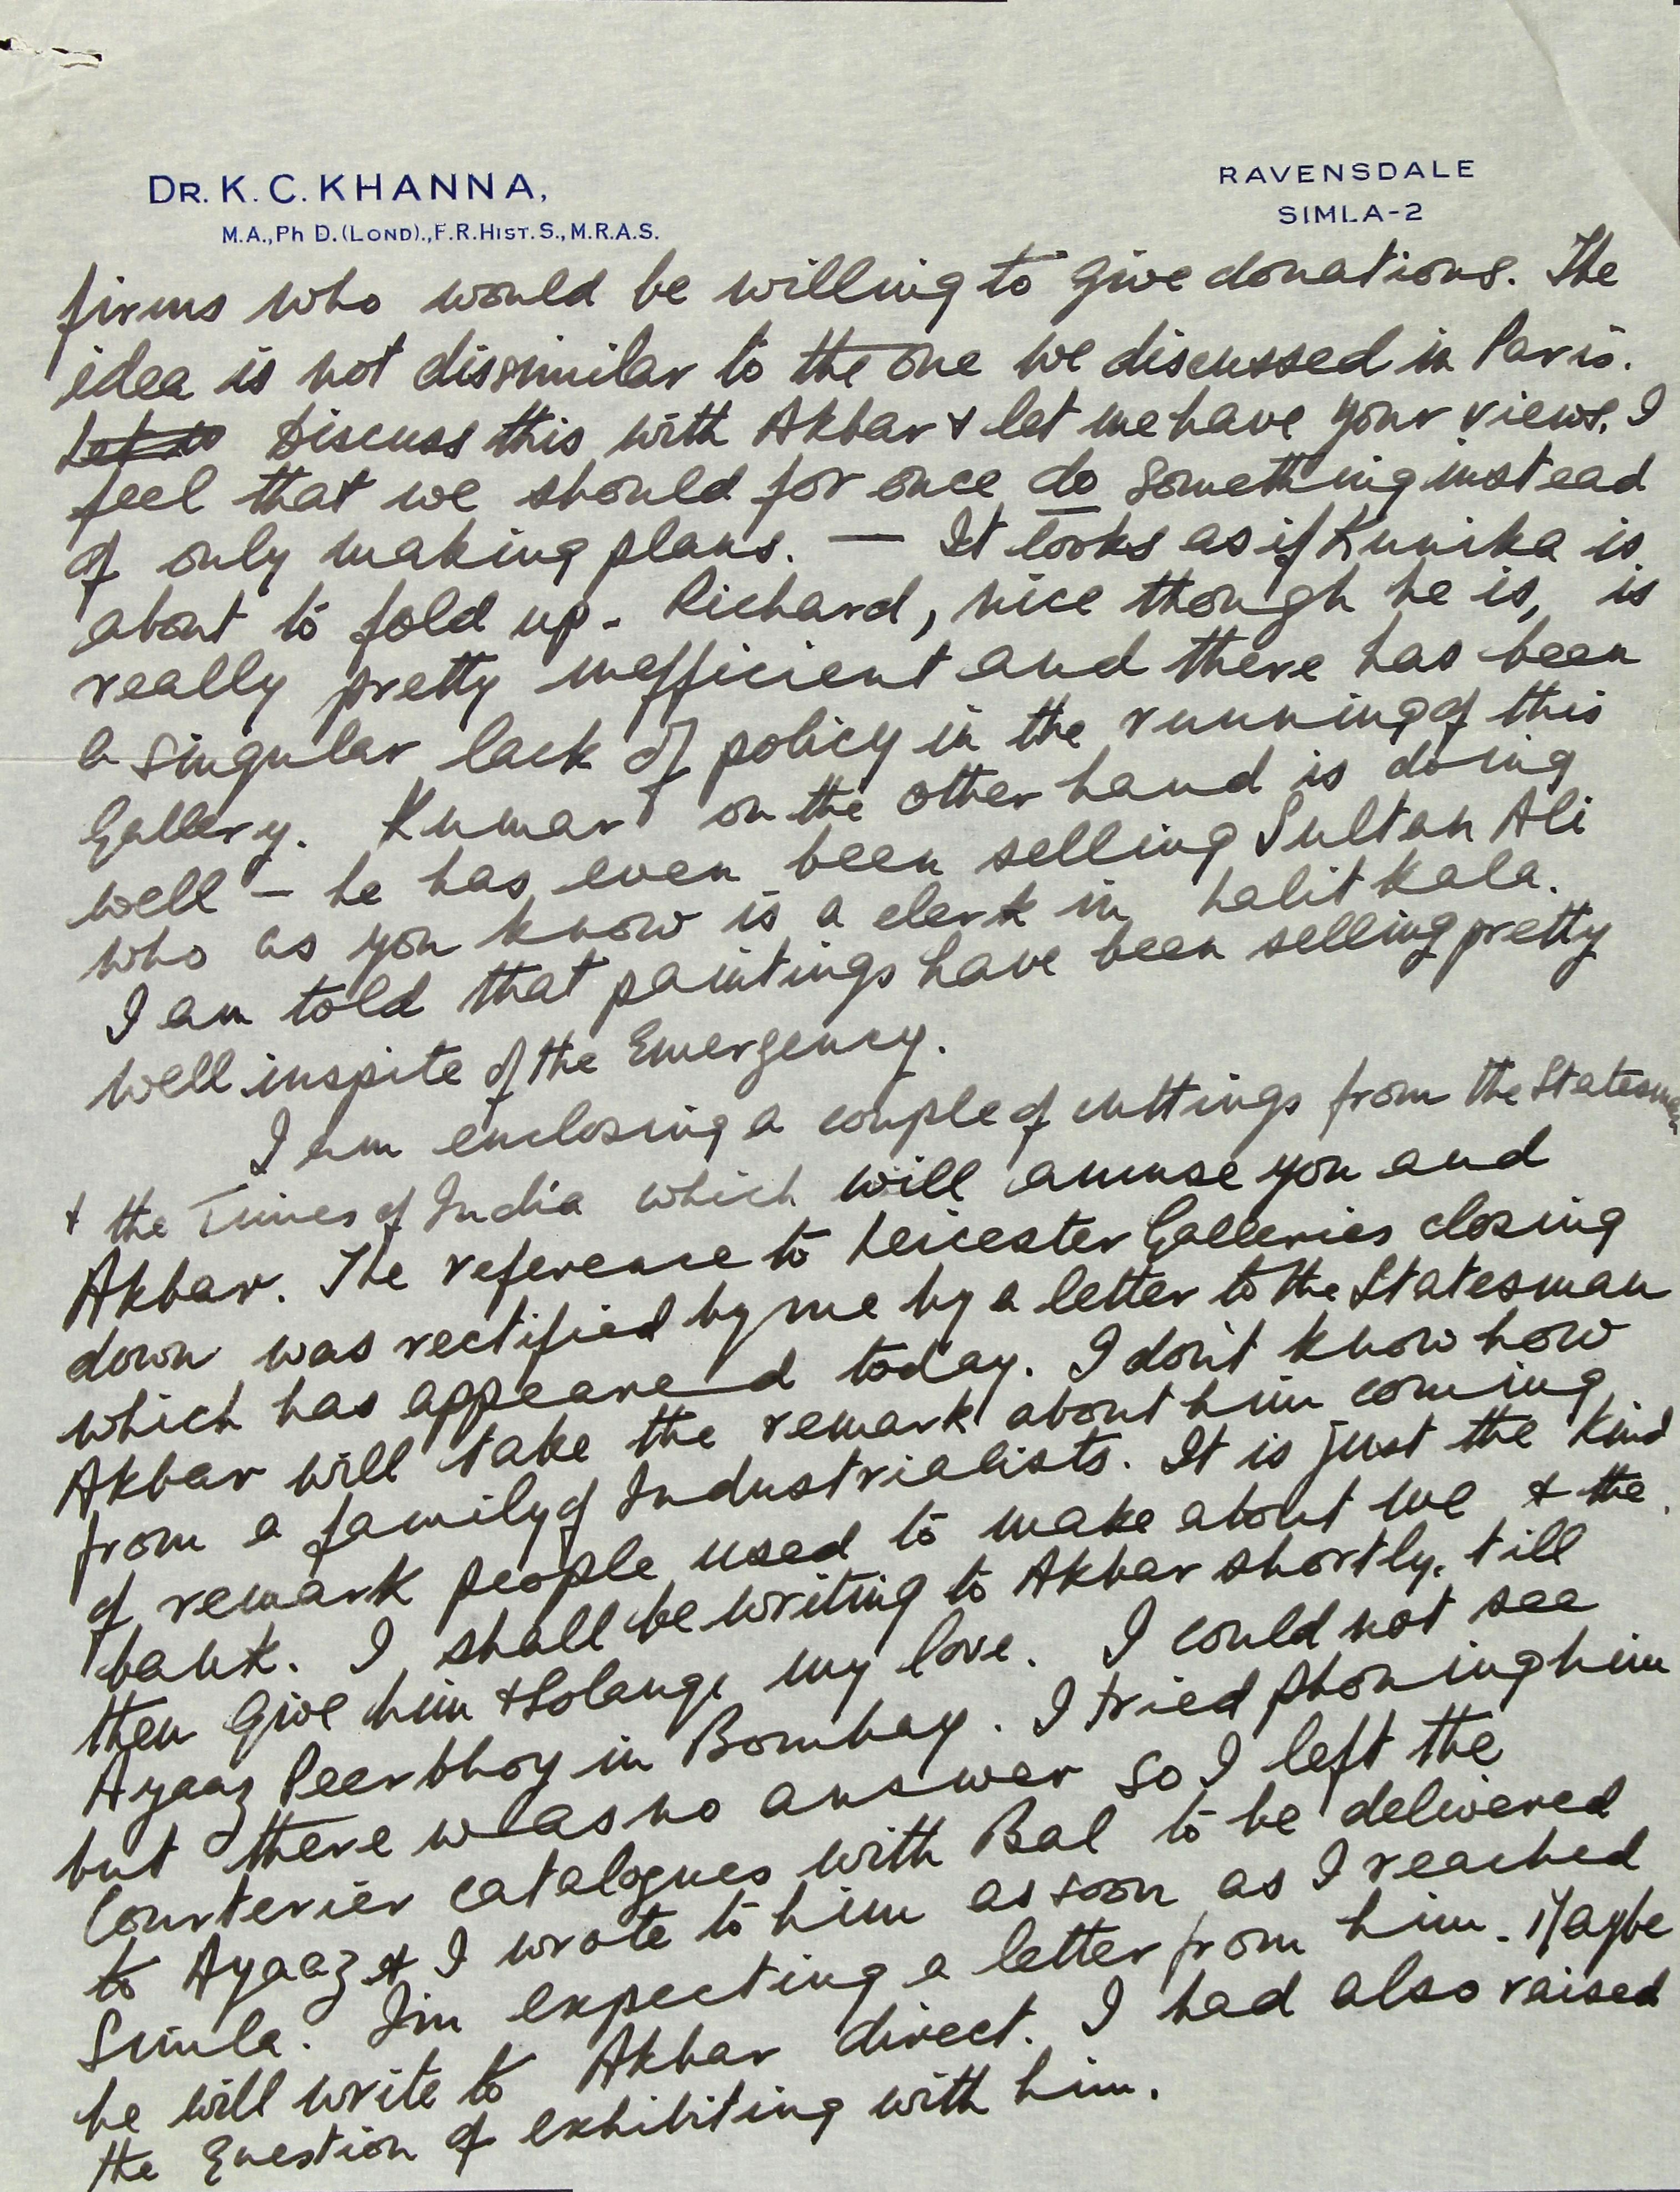 DR. K. C. KHANNA,
M.A., Ph D. (LOND)., F.R.HIST. S., M.R.A.S.
RAVENSDALE
SIMLA-2
firms who would be willing to give donations. The
idea is not dissimilar to the one we discussed in Paris.
Let us Discuss this with Akbar & let me have your views. I
feel that we should for once do something instead
of only making plans. — It looks as if Kunika is
about to fold up. Richard, nice though he is, is
really pretty inefficient and there has been
a singular lack of policy in the running of this
Gallery. Kumar on the other hand is doing
well – he has even been selling Sultan Ali
who as you know is a clerk in Lalit Kala.
I am told that paintings have been selling pretty
well inspite of the Emergency.
I am enclosing a couple of cuttings from the Statesman
& the Times of India which will amuse you and
Akbar. The reference to Leicester Galleries closing
down was rectified by me by a letter to the Statesman
which has appeared today. I don't know how
Akbar will take the remark about him coming
from a family of Industrialists. It is just the kind
of remark people used to make about me & the
bank. I shall be writing to Akbar shortly, till
then give him & Solange my love. I could not see
Ayaaz Peerbhoy in Bombay. I tried phoning him
but there was no answer so I left the
Courterier catalogues with Bal to be delivered
to Ayaaz & I wrote to him as soon as I reached
Simla. I'm expecting a letter from him. Maybe
he will write to Akbar direct. I had also raised
the Question of exhibiting with him.